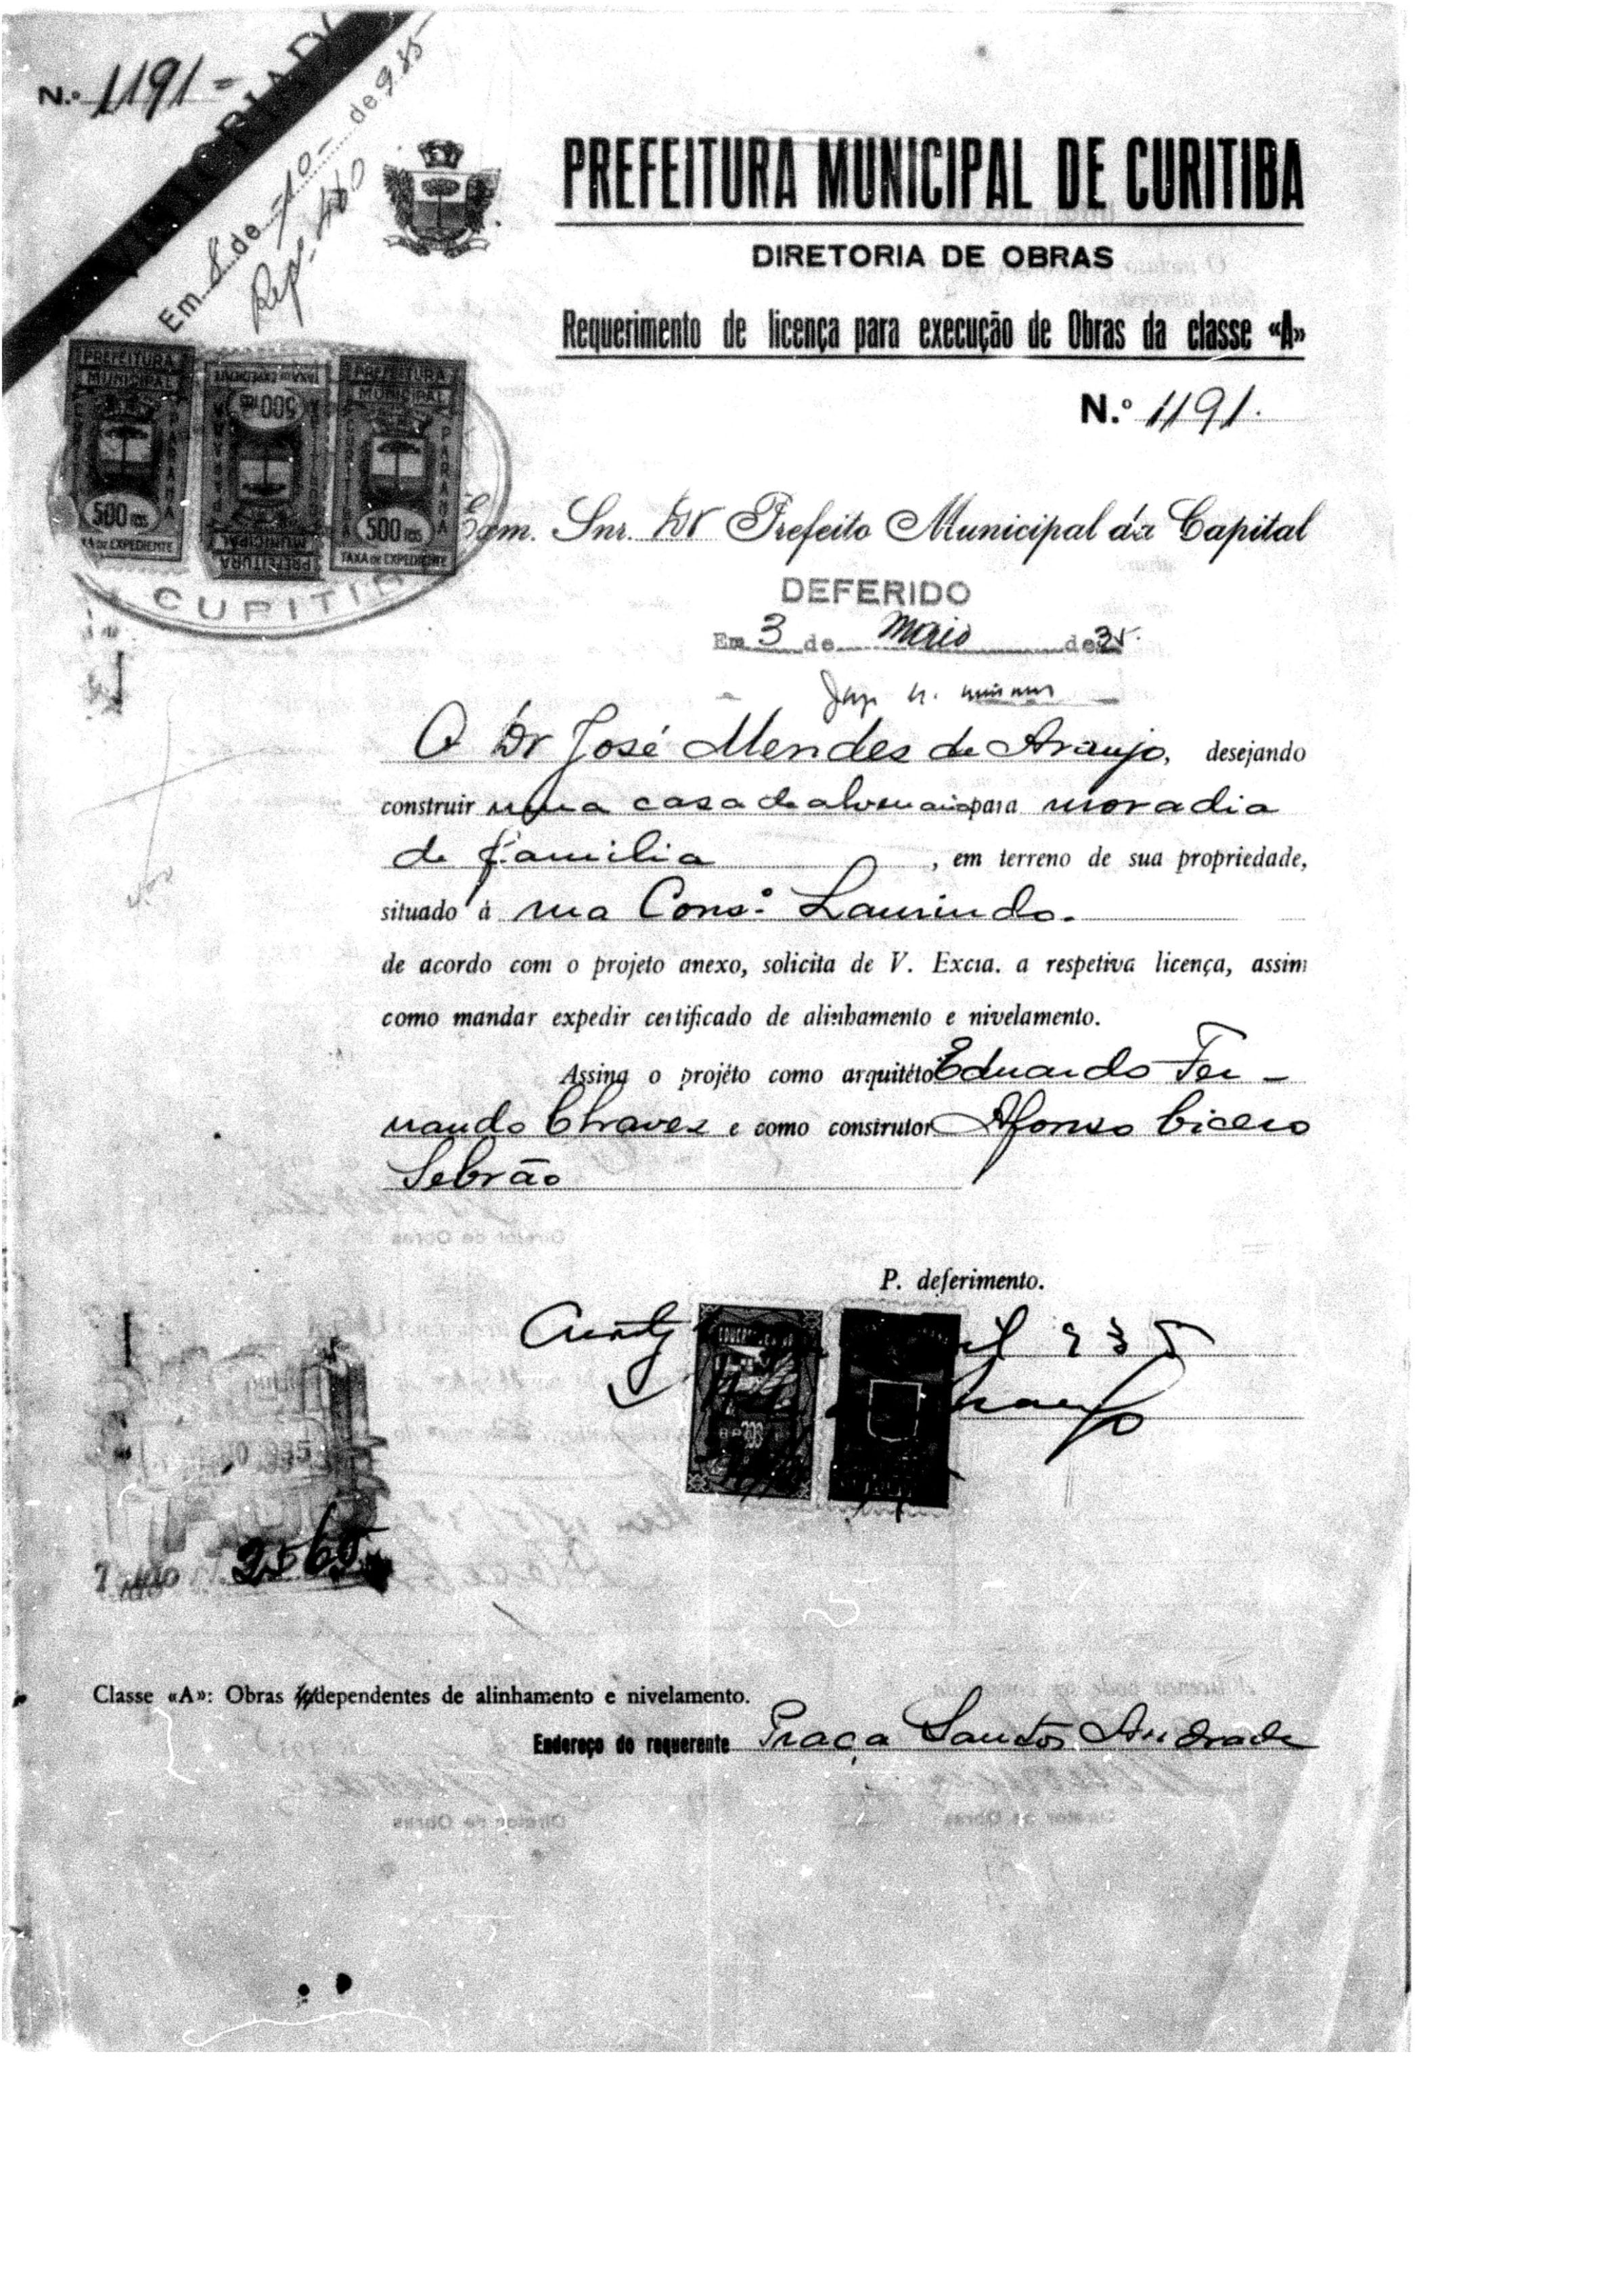 N.º 1191=
Em 8 de -10- de 935
PREFEITURA MUNICIPAL DE CURITIBA
DIRETORIA DE OBRAS
Requerimento de licença para execução de Obras da classe «A»
N.º 1191.
PREFEITURA MUNICIPAL
500 REIS
TAXA DE EXPEDIENTE
PREFEITURA MUNICIPAL
500 REIS
TAXA DE EXPEDIENTE
PREFEITURA MUNICIPAL
PARANÁ
500 REIS
TAXA DE EXPEDIENTE
CURITIB
Exm. Snr. Dr Prefeito Municipal da Capital
DEFERIDO
Em 3 de Maio de 35.
O Dr José Mendes de Araujo, desejando
construir uma casa de alvenaria para moradia
de familia , em terreno de sua propriedade,
situado á rua Consº Laurindo.
de acordo com o projeto anexo, solicita de V. Excia. a respetiva licença, assim
como mandar expedir certificado de alinhamento e nivelamento.
Assina o projéto como arquitéto Eduardo Fer-
nando Chaves e como construtor Afonso Cicero
Sebrão
P. deferimento.
935
2560
Classe «A»: Obras dependentes de alinhamento e nivelamento.
Endereço do requerente Praça Santos Andrade